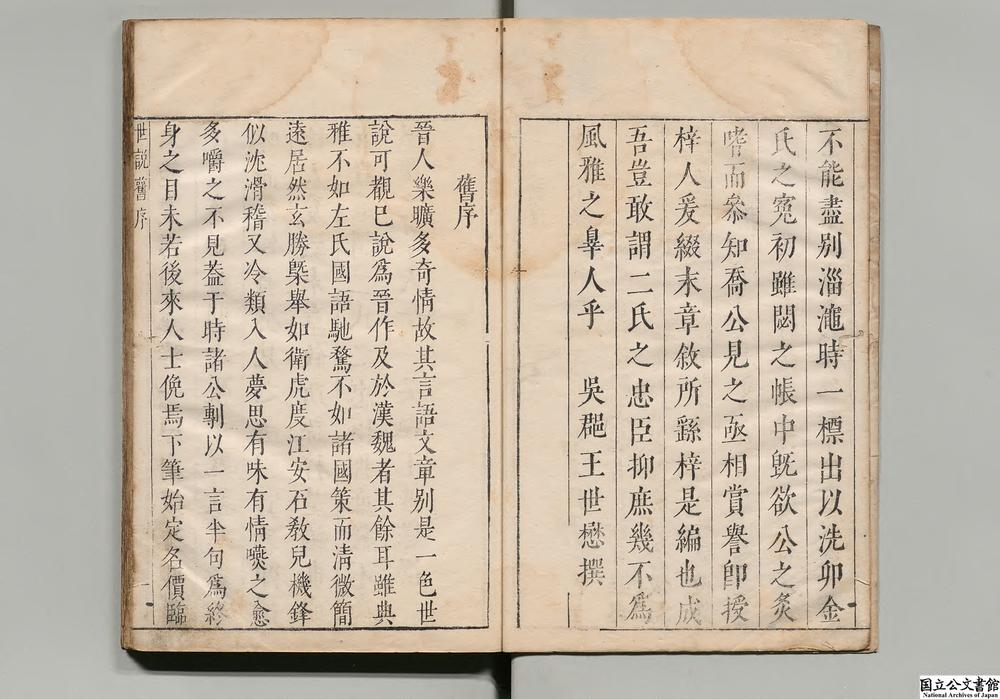 不能盡別淄澠時一標出以洗卯金
氏之寃初雖閟之帳中旣欲公之炙
嗜而叅知喬公見之亟相賞譽卽授
梓人爰綴末章敘所繇梓是編也成
吾豈敢謂二氏之忠臣抑庶幾不爲
風雅之辠人乎 吳郡王世懋撰
舊序
晉人樂曠多奇情故其言語文章别是一色世
說可覩已說爲晉作及於漢魏者其餘耳雖典
雅不如左氏國語馳騖不如諸國策而淸微簡
遠居然玄勝槩舉如衛虎度江安石敎兒機鋒
似沈滑稽又冷類入人夢思有味有情嚥之愈
多嚼之不見葢于時諸公剸以一言半句爲終
身之目未若後來人士俛焉下筆始定名價臨
世說舊序
一
国立公文書館
National Archives of Japan